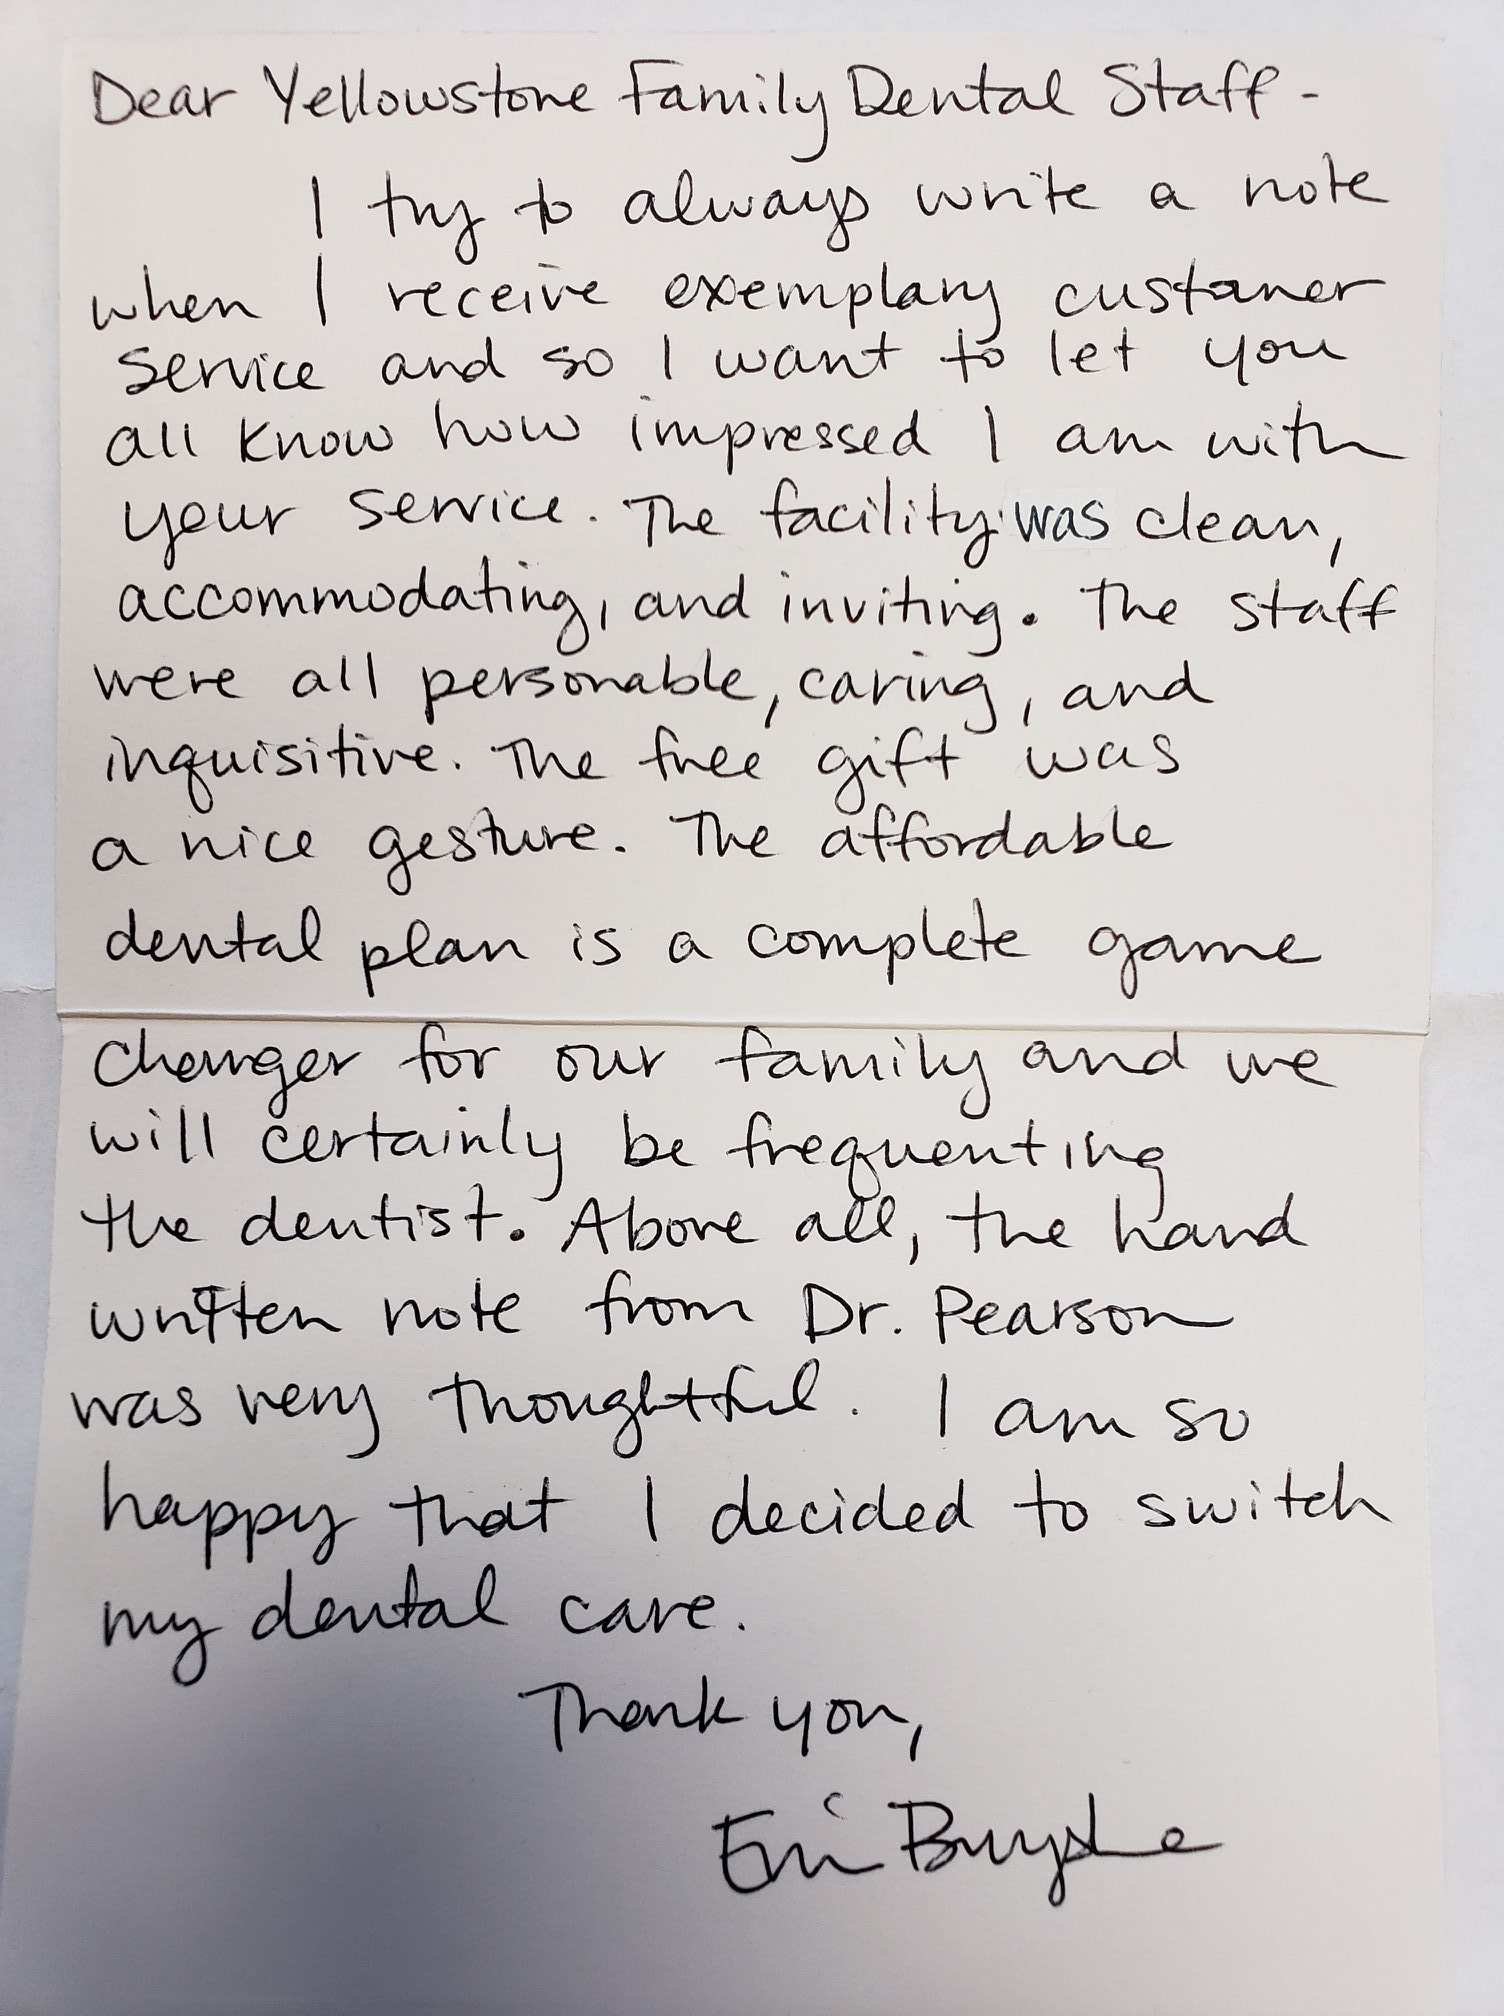 Dear Yellowstone Family Dental Staff -
I try to always write a note
when I receive exemplary customer
service and so I want to let you
all know how impressed I am with
your service. The facility was clean,
accommodating, and inviting. The staff
were all personable, caring, and
inquisitive. The free gift was
a nice gesture. The affordable
dental plan is a complete game
changer for our family and we
will certainly be frequenting
the dentist. Above all, the hand
written note from Dr. Pearson
was very thoughtful. I am so
happy that I decided to switch
my dental care.
Thank you,
Erin